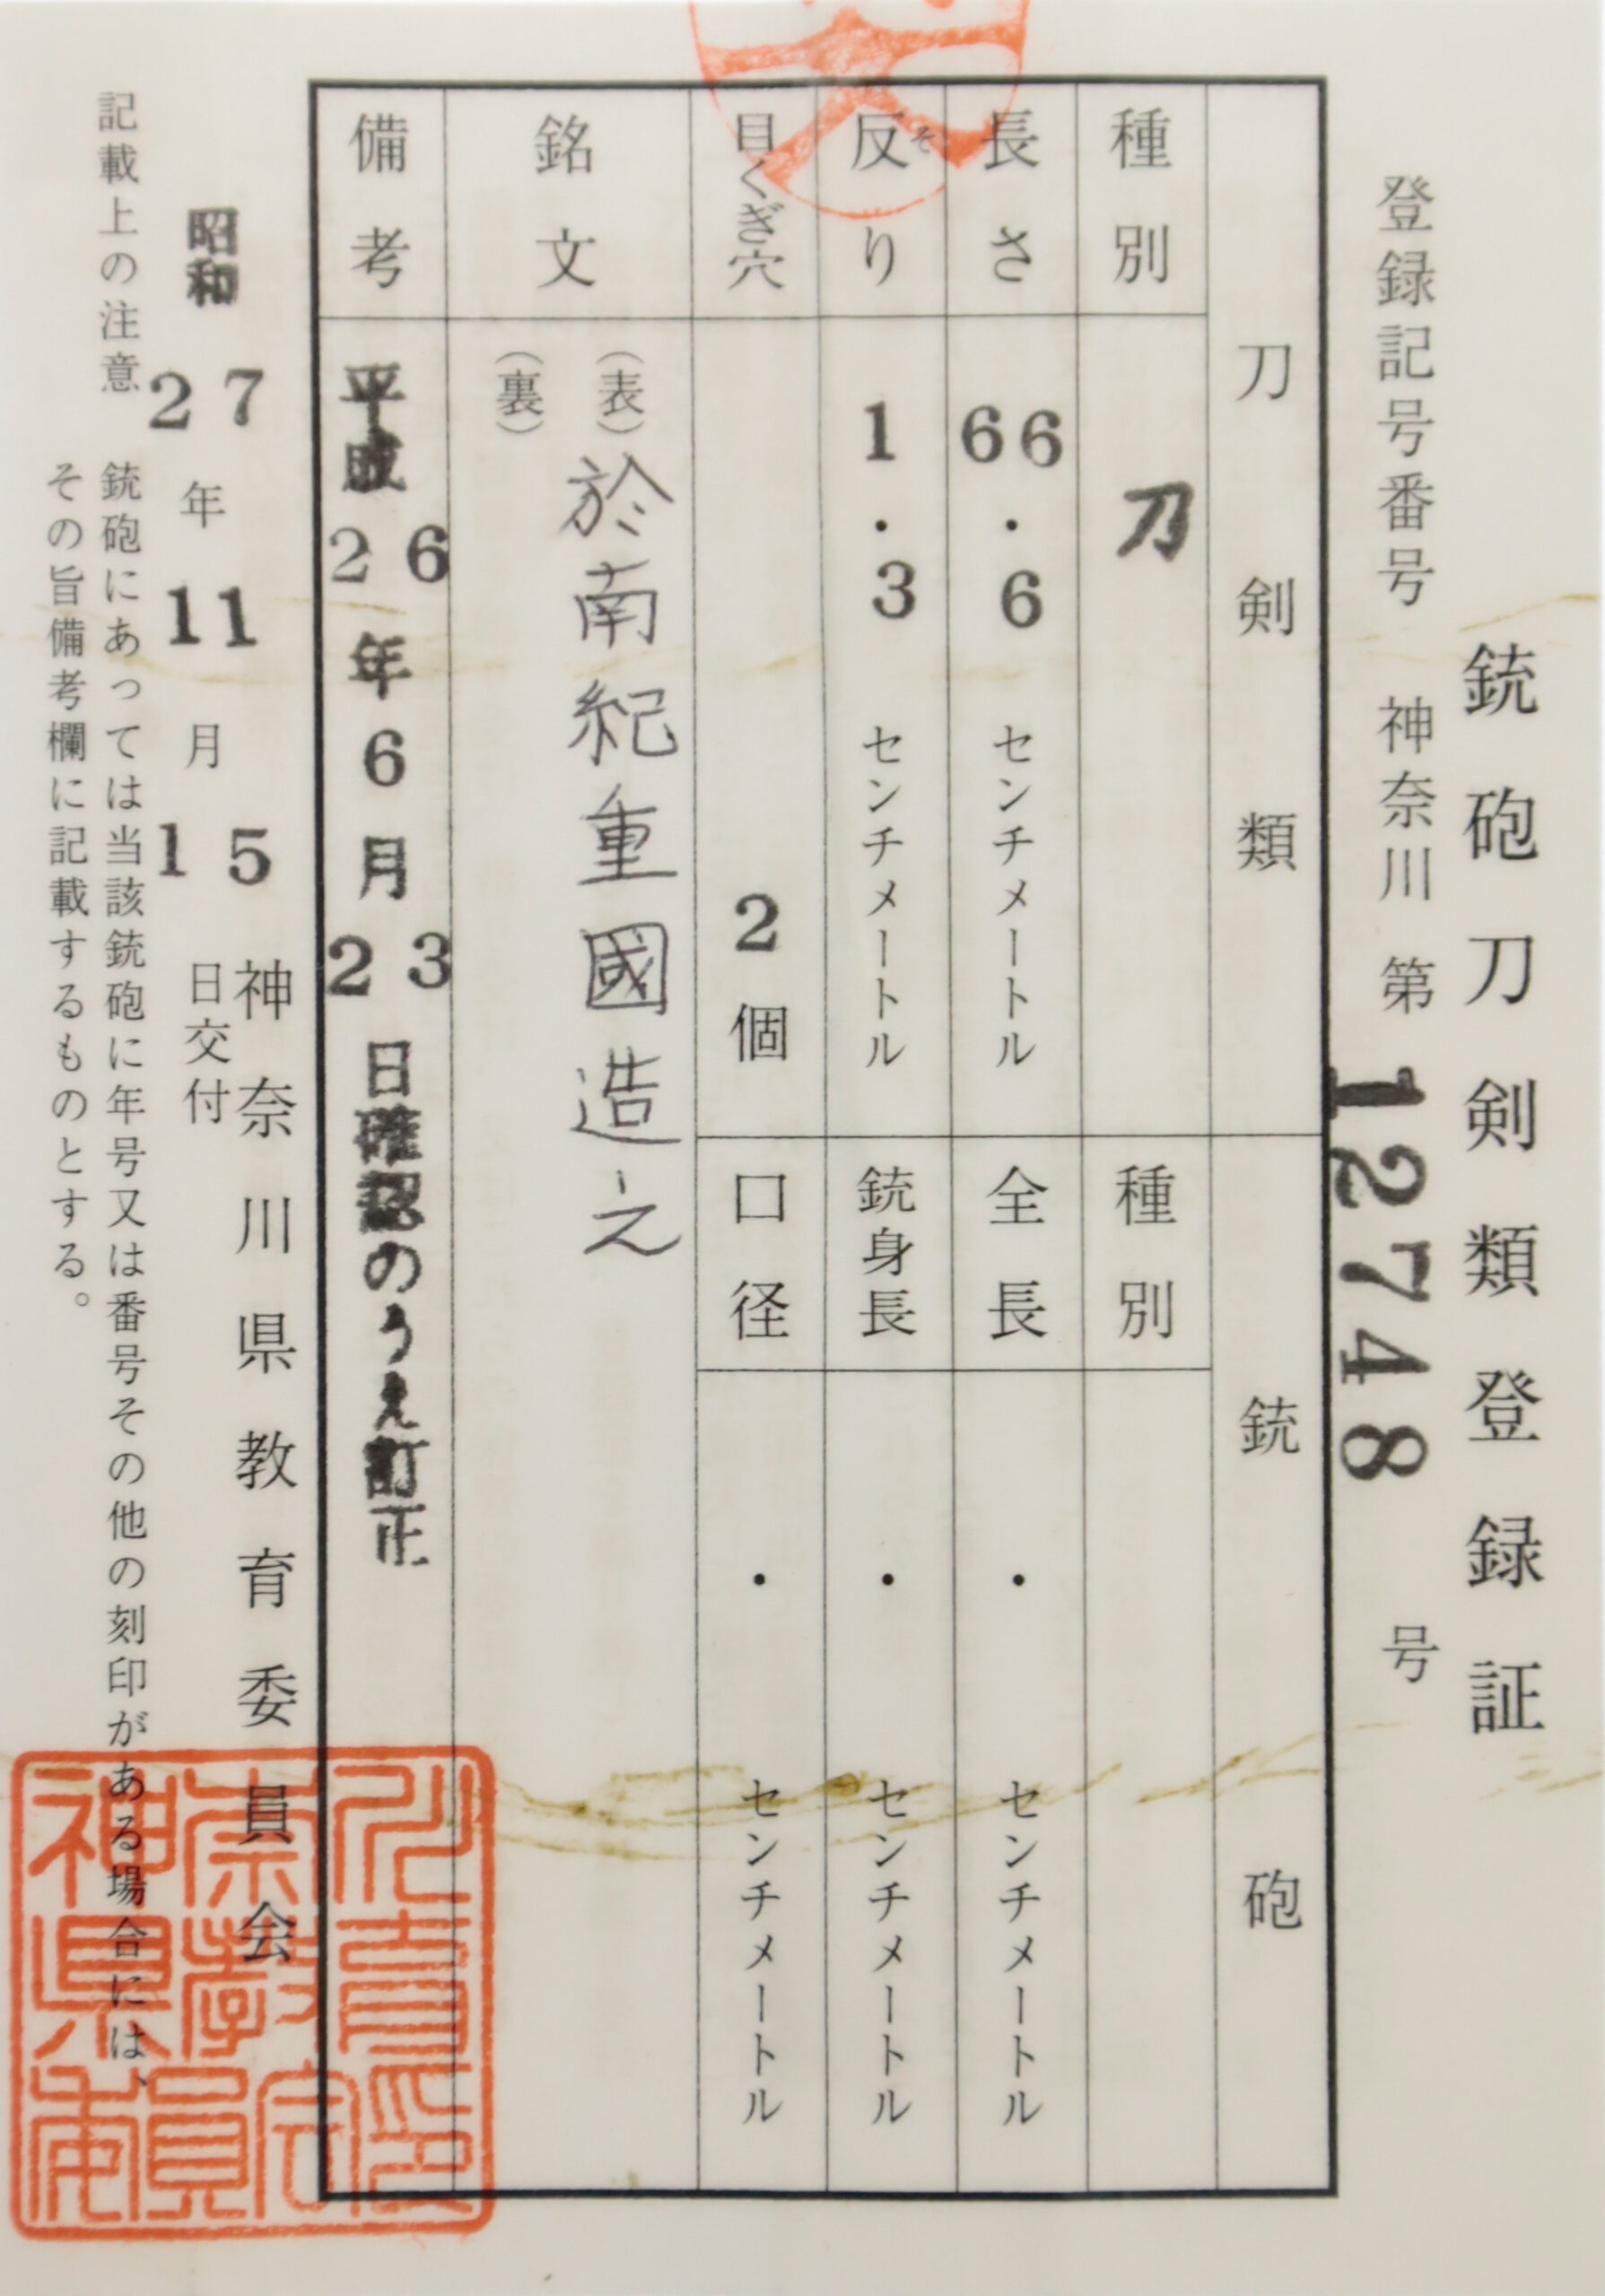 銃砲刀剣類登録証
登録記号番号 神奈川 第 12748 号
刀剣類
種別 刀
長さ 66.6 センチメートル
反り 1.3 センチメートル
そ
目くぎ穴 2個
銃砲
種別
全長 ・ センチメートル
銃身長 ・ センチメートル
口径 ・ センチメートル
銘文
(表) 於南紀重國造之
(裏)
備考 平成26年6月23日確認のうえ訂正
神奈川県教育委員会
昭和27年11月15日交付
記載上の注意 銃砲にあっては当該銃砲に年号又は番号その他の刻印がある場合には、
その旨備考欄に記載するものとする。
神奈川
県教育
委員会印